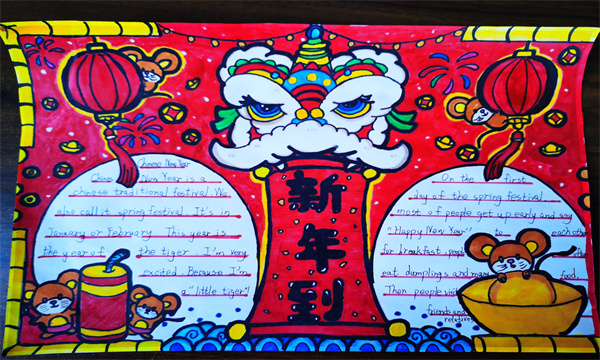 Chinese New Year
Chinese New Year is a
chinese traditional festival. We
also call it spring festival. It's in
January or February. This year is
the year of the tiger. I'm very
excited. Because I'm
a "little tiger"!
新年到
On the first
day of the spring festival
most of people get up early and say
"Happy New Year" to each other
for breakfast people
eat dumplings and many food.
Then people visit
friends and
relatives